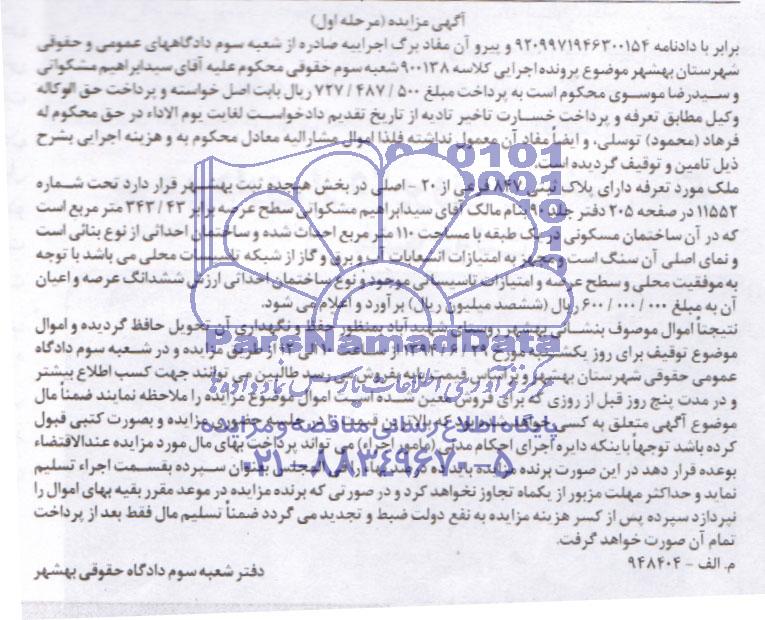 آگهی مزایده (مرحله اول)
برابر با دادنامه ۹۲۰۹۹۷۱۹۴۶۳۰۰۱۵۴ و پیرو آن مفاد برگ اجراییه صادره از شعبه سوم دادگاههای عمومی و حقوقی
شهرستان بهشهر موضوع پرونده اجرایی کلاسه ۹۰۰۱۳۸ شعبه سوم حقوقی محکوم علیه آقای سیدابراهیم مشکواتی
و سیدرضا موسوی محکوم است به پرداخت مبلغ ۵۰۰ / ۴۸۷ / ۷۲۷ ریال بابت اصل خواسته و پرداخت حق الوکاله
وکیل مطابق تعرفه و پرداخت خسارت تاخیر تادیه از تاریخ تقدیم دادخواست لغایت یوم الاداء در حق محکوم له
فرهاد (محمود) توسلی، و ایفأ مفاد آن معمول نداشته فلذا اموال مشارالیه معادل محکوم به و هزینه اجرایی بشرح
ذیل تامین و توقیف گردیده است.
ملک مورد تعرفه دارای پلاک ثبتی ۸۴۷ فرعی از ۲۰ - اصلی در بخش هیجده ثبت بهشهر قرار دارد تحت شماره
۱۱۵۵۲ در صفحه ۲۰۵ دفتر جلد ۹۰ بنام مالک آقای سیدابراهیم مشکواتی سطح عرصه برابر ۴۳ / ۳۴۳ متر مربع است
که در آن ساختمان مسکونی در یک طبقه با مساحت ۱۱۰ متر مربع احداث شده و ساختمان احداثی از نوع بنائی است
و نمای اصلی آن سنگ است و مجهز به امتیازات انشعابات آب و برق و گاز از شبکه تاسیسات محلی می باشد با توجه
به موقعیت محلی و سطح عرصه و امتیازات تاسیساتی موجود و نوع ساختمان احداثی ارزش ششدانگ عرصه و اعیان
آن به مبلغ ۰۰۰ / ۰۰۰ / ۶۰۰ ریال (ششصد میلیون ریال) برآورد و اعلام می شود.
نتیجتأ اموال موصوف بنشانی بهشهر روستای شهیدآباد بمنظور حفظ و نگهداری آن تحویل حافظ گردیده و اموال
موضوع توقیف برای روز یکشنبه مورخ ۲۹ / ۶ / ۱۳۹۴ از ساعت ۱۰ الی ۱۲ از طریق مزایده و در شعبه سوم دادگاه
عمومی حقوقی شهرستان بهشهر و بر اساس قیمت پایه بفروش می رسد طالبین می توانند جهت کسب اطلاع بیشتر
و در مدت پنج روز قبل از روزی که برای فروش معین شده است اموال موضوع مزایده را ملاحظه نمایند ضمنأ مال
موضوع آگهی متعلق به کسی خواهد بود که بالاترین قیمت را در جلسه حضوری مزایده و بصورت کتبی قبول
کرده باشد توجهأ باینکه دایره اجرای احکام مدنی (مامور اجراء) می تواند پرداخت بهای مال مورد مزایده عندالاقتضاء
بوعده قرار دهد در این صورت برنده مزایده باید ده درصد بها را فی المجلس بعنوان سپرده بقسمت اجراء تسلیم
نماید و حداکثر مهلت مزبور از یکماه تجاوز نخواهد کرد و در صورتی که برنده مزایده در موعد مقرر بقیه بهای اموال را
نپردازد سپرده پس از کسر هزینه مزایده به نفع دولت ضبط و تجدید می گردد ضمنأ تسلیم مال فقط بعد از پرداخت
تمام آن صورت خواهد گرفت.
م. الف - ۹۴۸۴۰۴
دفتر شعبه سوم دادگاه حقوقی بهشهر
ParsNamadData
مرکز فرآوری اطلاعات پارس نماد داده ها
پایگاه اطلاع رسانی مناقصه و مزایده
۰۲۱-۸۸۳۴۹۶۷۰-۵